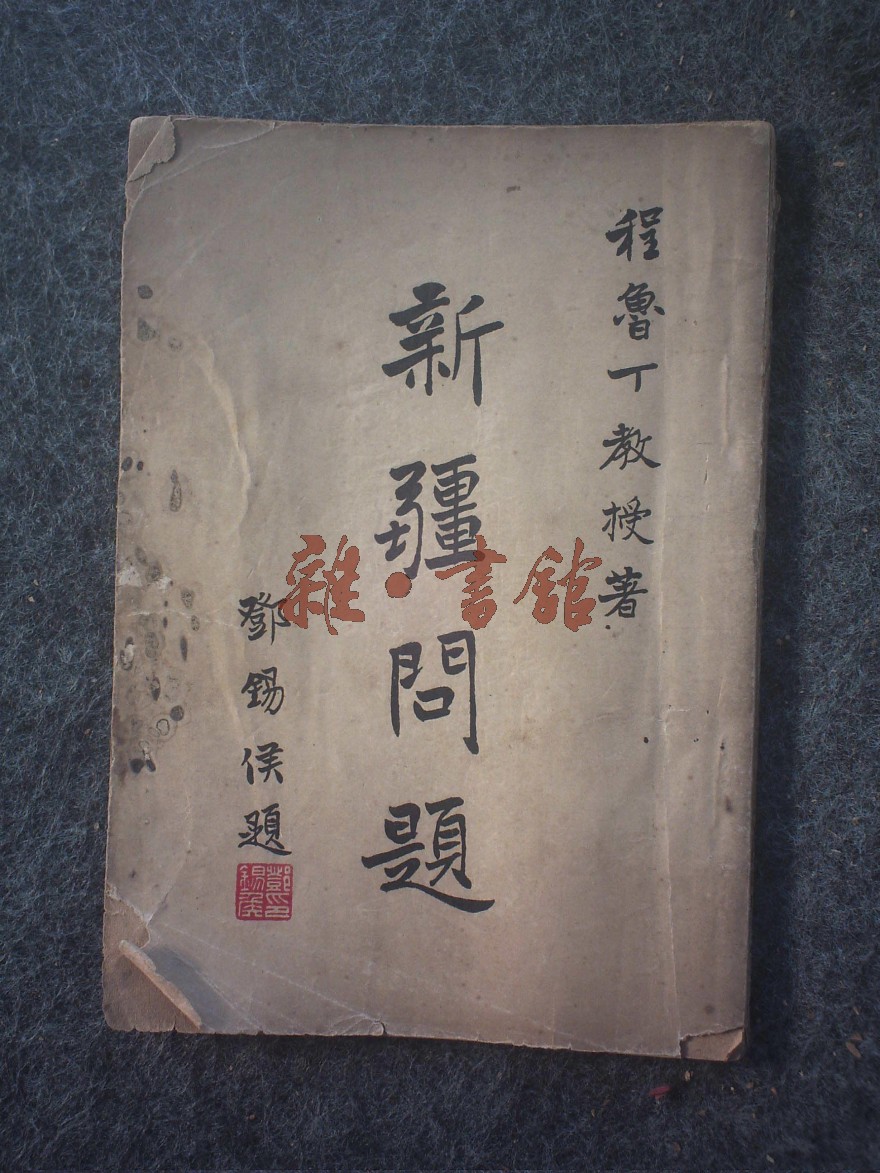 程魯丁教授著
新疆問題
鄧錫侯題
鄧錫侯印
雜·書館